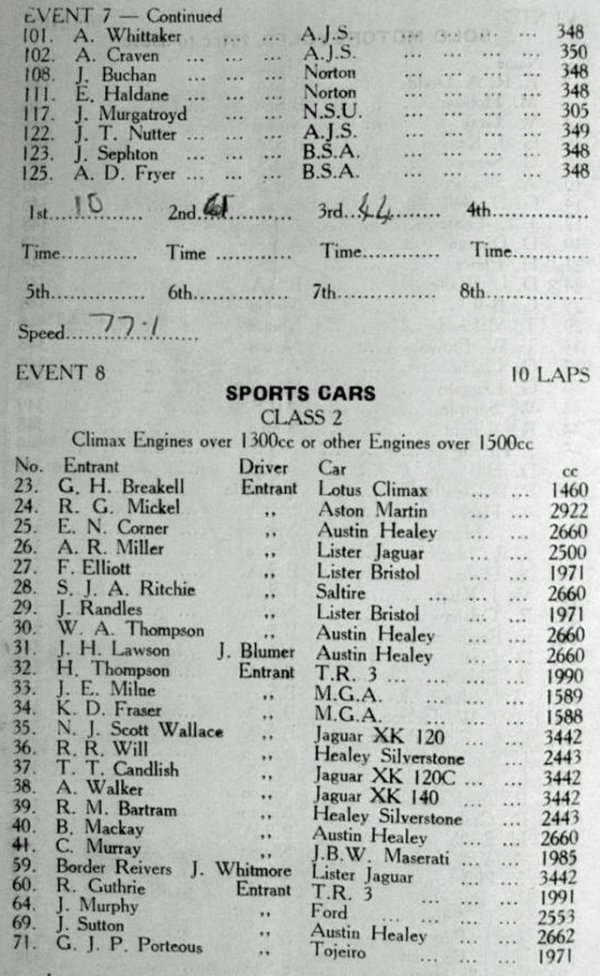 EVENT 7 — Continued
101. A. Whittaker ... ... A.J.S. ... ... ... ... 348
102. A. Craven ... ... ... A.J.S. ... ... ... ... 350
108. J. Buchan ... ... ... Norton ... ... ... ... 348
111. E. Haldane ... ... ... Norton ... ... ... ... 348
117. J. Murgatroyd ... ... N.S.U. ... ... ... ... 305
122. J. T. Nutter ... ... ... A.J.S. ... ... ... ... 349
123. J. Sephton ... ... ... B.S.A. ... ... ... ... 348
125. A. D. Fryer ... ... ... B.S.A. ... ... ... ... 348
1st....10.... 2nd........ 3rd...44.... 4th............
Time............ Time ............ Time............ Time............
5th............ 6th............ 7th............ 8th............
Speed....77.1....
EVENT 8 10 LAPS
SPORTS CARS
CLASS 2
Climax Engines over 1300cc or other Engines over 1500cc
No. Entrant Driver Car cc
23. G. H. Breakell Entrant Lotus Climax ... ... 1460
24. R. G. Mickel ,, Aston Martin ... ... 2922
25. E. N. Corner ,, Austin Healey ... ... 2660
26. A. R. Miller ,, Lister Jaguar ... ... 2500
27. F. Elliott ,, Lister Bristol ... ... 1971
28. S. J. A. Ritchie ,, Saltire ... ... ... 2660
29. J. Randles ,, Lister Bristol ... ... 1971
30. W. A. Thompson ,, Austin Healey ... ... 2660
31. J. H. Lawson J. Blumer Austin Healey ... ... 2660
32. H. Thompson Entrant T.R. 3 ... ... ... ... 1990
33. J. E. Milne ,, M.G.A. ... ... ... 1589
34. K. D. Fraser ,, M.G.A. ... ... ... 1588
35. N. J. Scott Wallace ,, Jaguar XK 120 ... ... 3442
36. R. R. Will ,, Healey Silverstone ... 2443
37. T. T. Candlish ,, Jaguar XK 120C ... ... 3442
38. A. Walker ,, Jaguar XK 140 ... ... 3442
39. R. M. Bartram ,, Healey Silverstone ... 2443
40. B. Mackay ,, Austin Healey ... ... 2660
41. C. Murray ,, J.B.W. Maserati ... ... 1985
59. Border Reivers J. Whitmore Lister Jaguar ... ... 3442
60. R. Guthrie Entrant T.R. 3 ... ... ... 1991
64. J. Murphy ,, Ford ... ... ... ... 2553
69. J. Sutton ,, Austin Healey ... ... 2662
71. G. J. P. Porteous ,, Tojeiro ... ... ... 1971